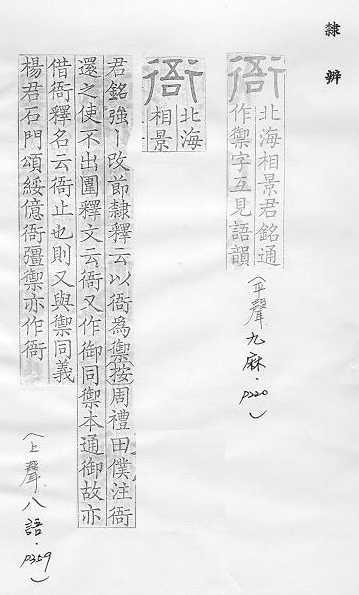 隸辨
衙 北海相景君銘通
作禦字互見語韻
（平聲九麻．P220）
衙 北海
相景
君銘強丨改節隸釋云以衙為禦按周禮田僕注衙
還之使不出圍釋文云衙又作御同禦本通御故亦
借衙釋名云衙止也則又與禦同義
楊君石門頌綏億衙彊禦亦作衙
（上聲八語．P359）